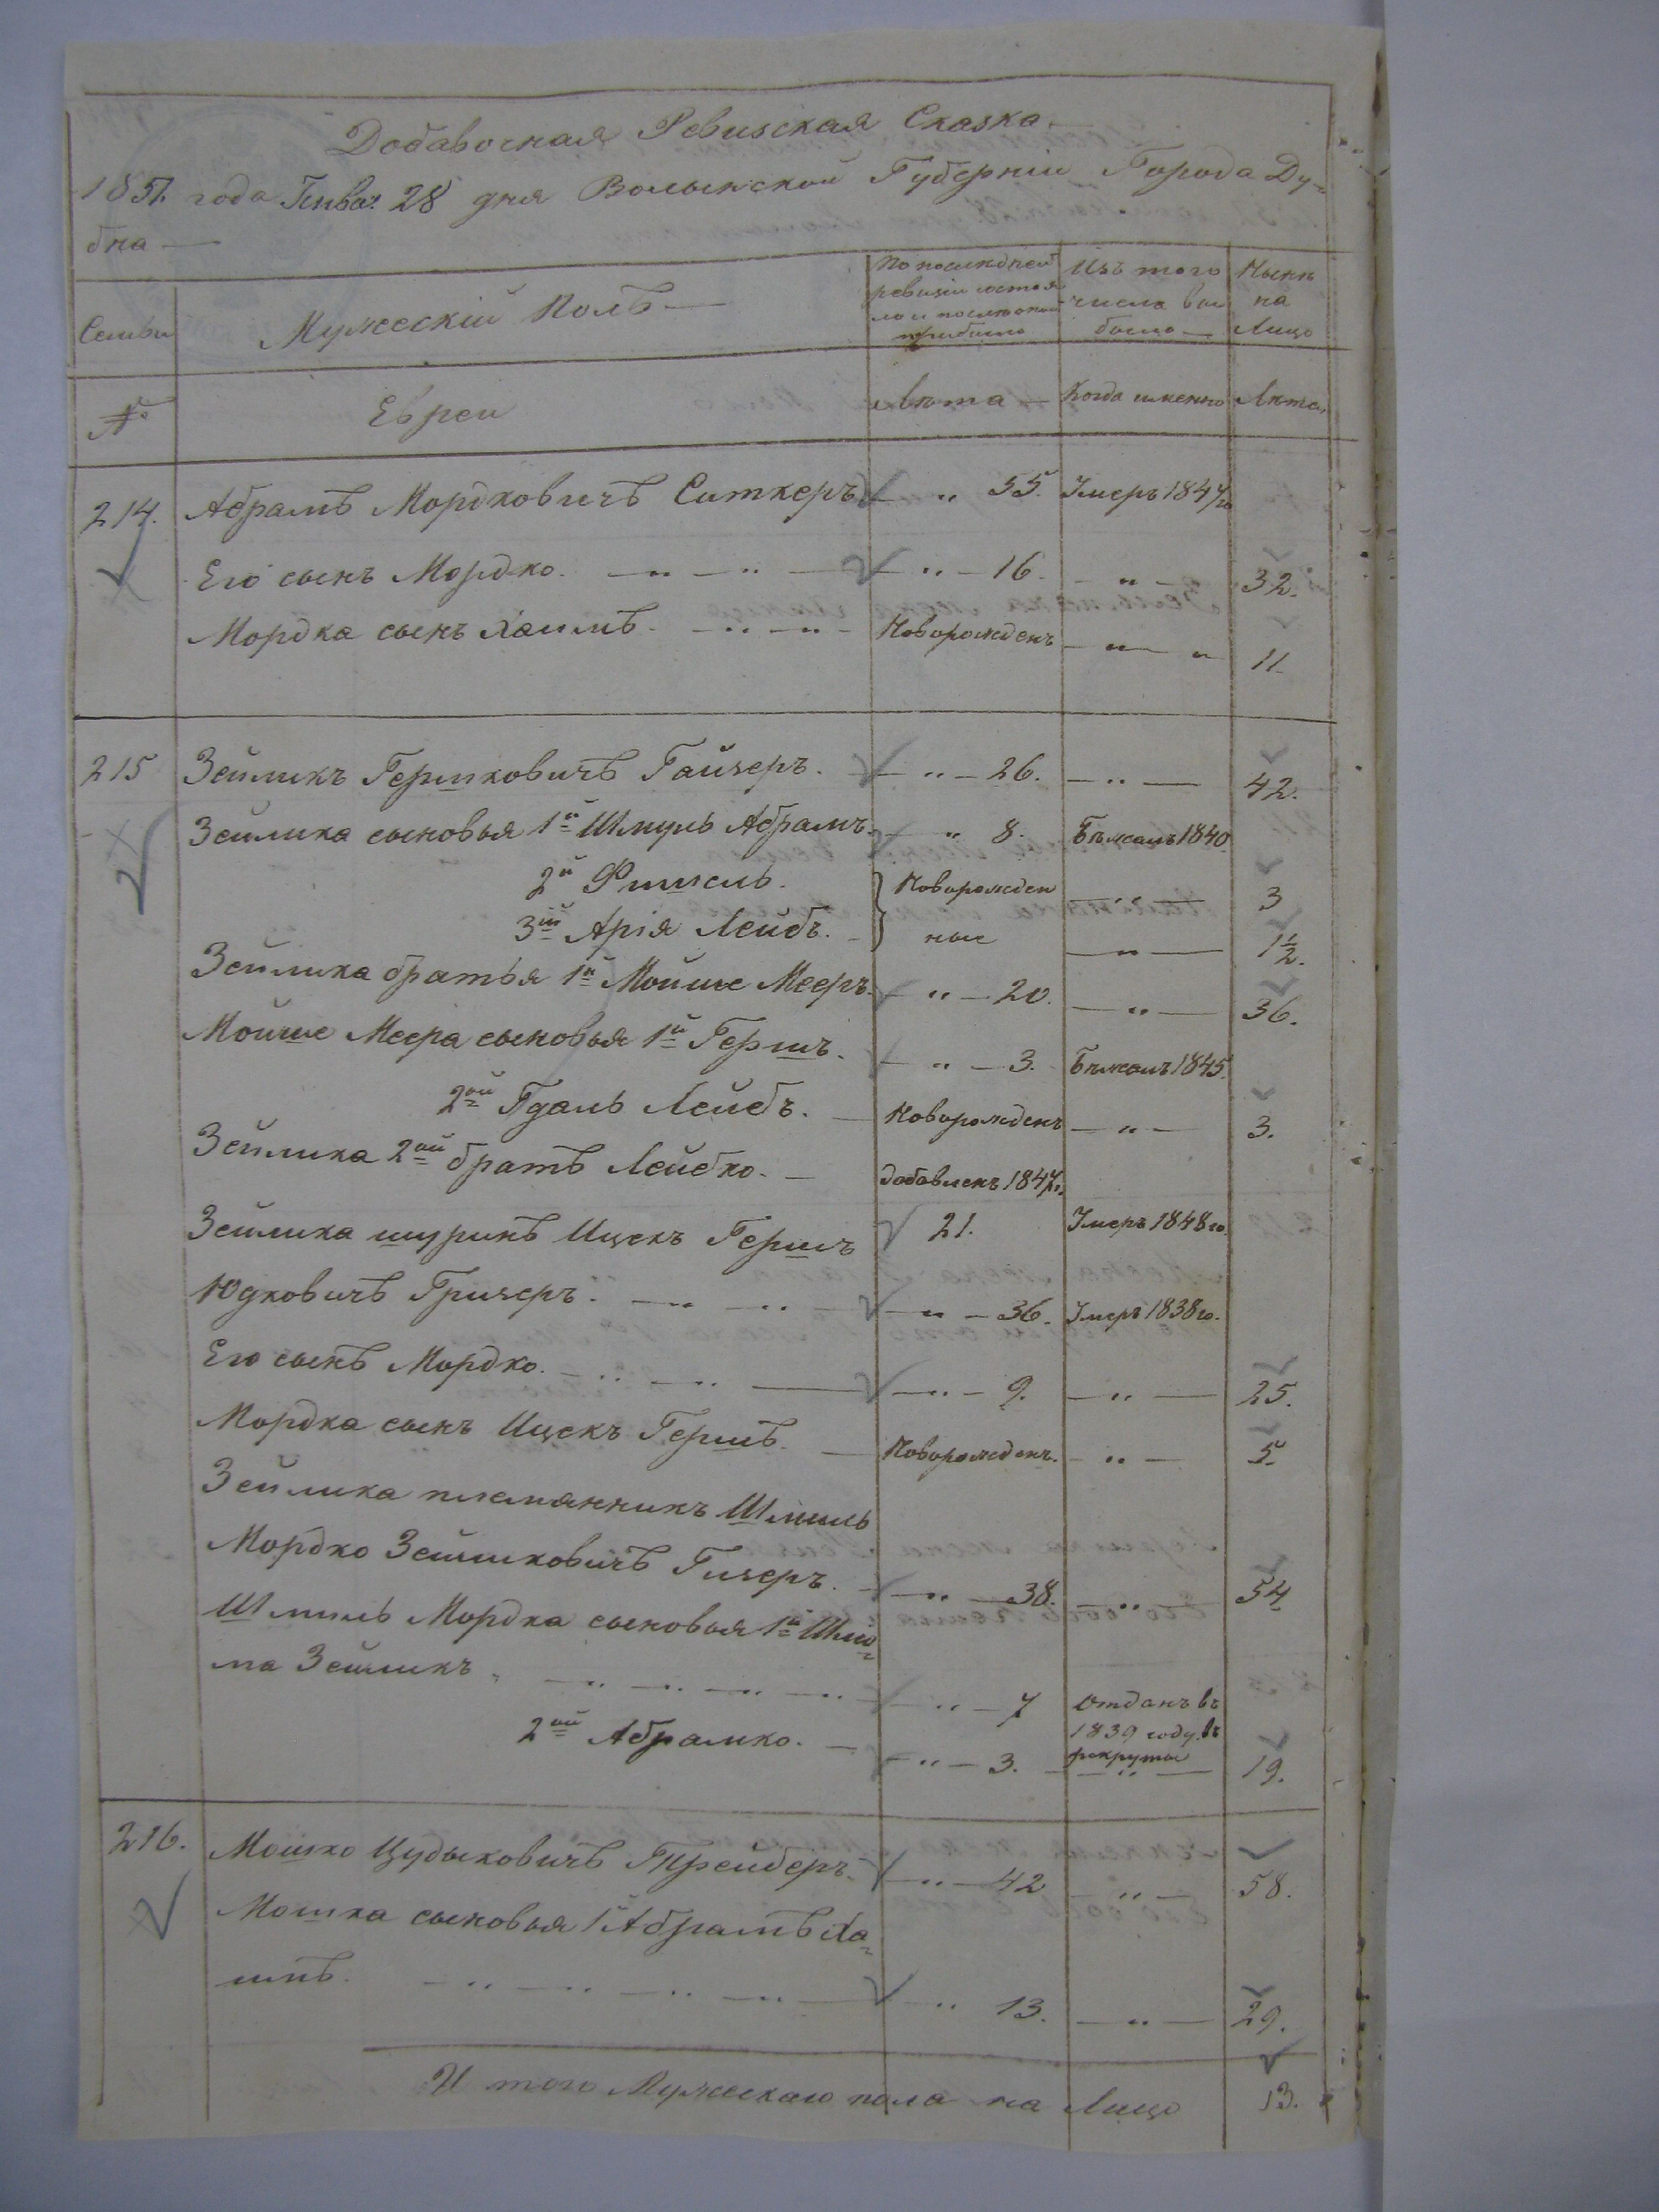 Добавочная Ревизская Сказка
1851 года Генвар 28 дня Волынской Губерніи Города Ду-
бна
Семьи
Мужескій Полъ
По последней ревизіи состояло и после оной прибыло
Изъ того числа выбыло
Ныне на Лицо
№ Евреи Лѣта Когда именно Лѣта
214. Абрамъ Мордковичъ Ситкеръ " 55. Умеръ 1847 го
Его сынъ Мордко. " 16. " 32.
Мордка сынъ Хаимъ. Новорожденъ " 11
215 Зейликъ Гершковичъ Гайзеръ. " 26. " 42.
Зейлика сыновья 1й Шмуль Абрамъ. " 8. Бѣжалъ 1840.
2й Фишель. Новорожден " 3
3ій Арія Лейбъ. ные " 1½.
Зейлика братья 1й Мойше Мееръ. " 20. " 36.
Мойше Меера сыновья 1й Гершъ. " 3. Бѣжалъ 1845.
2ой Гдаль Лейбъ. Новорожденъ " 3.
Зейлика 2ой братъ Лейбко. добавленъ 1847 г.
21. Умеръ 1848 го.
Зейлика шуринъ Ицекъ Гершъ
Юдковичъ Гризеръ. " 36. Умеръ 1838 го.
Его сынъ Мордко. " 9. " 25.
Мордка сынъ Ицекъ Гершъ. Новорожденъ. " 5.
Зейлика племянникъ Шмиль
Мордко Зейликовичъ Гизеръ. " 38. " 54
Шмиль Мордка сыновья 1й Шлю-
ма Зейликъ. " 7 отданъ въ
1839 году въ
рекруты
2ой Абрамко. " 3. " 19.
216. Мошко Цудыковичъ Трейберъ. " 42 " 58.
Мошка сыновья 1й Абрамъ Ха-
имъ. " 13. " 29.
И того Мужескаго пола на Лицо 13.